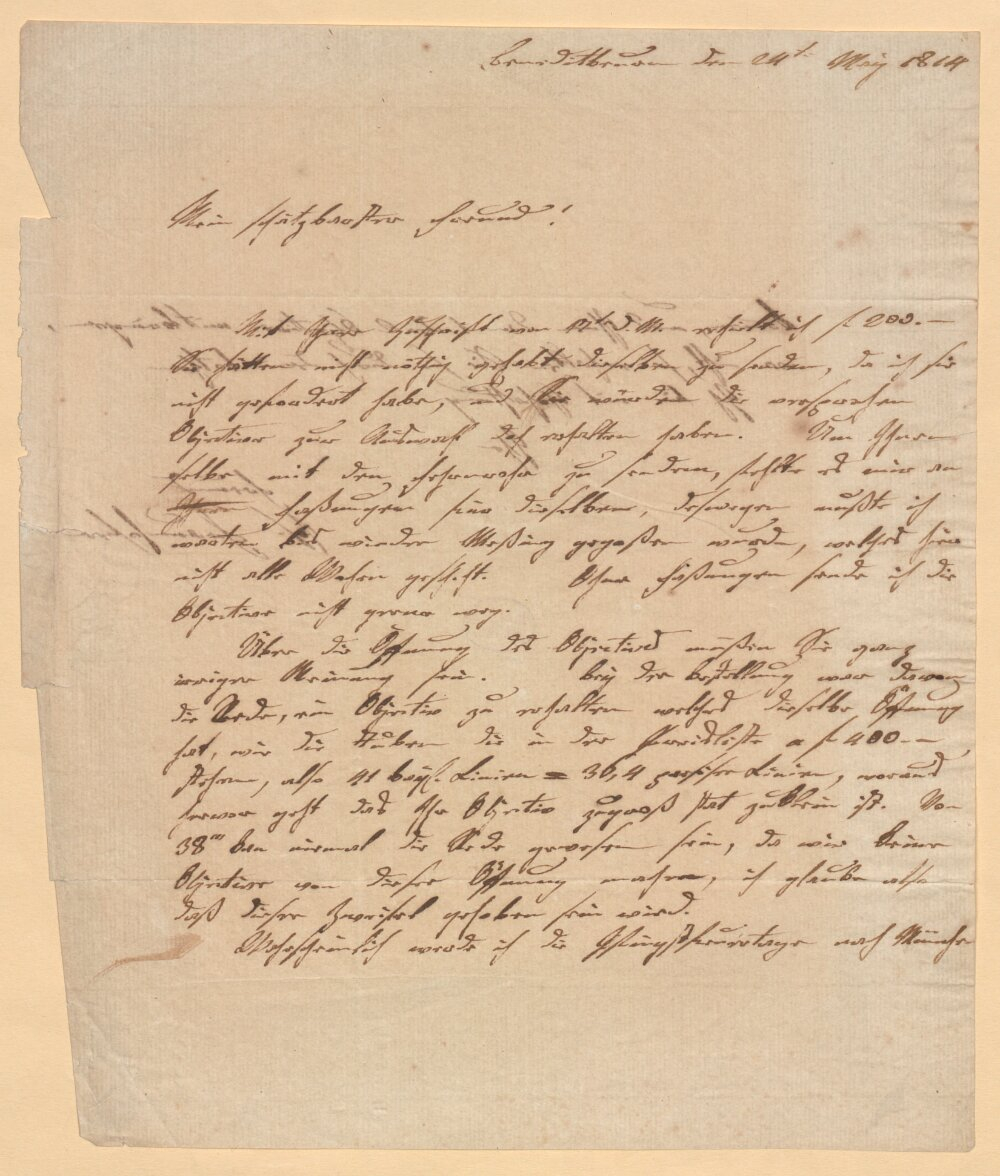 Benedictbeuern den 24t May 1814
Mein schätzbarster Freund!
Mit Ihrer Zuschrift vom 12t d. M. erhielt ich f 200.—
Sie hätten nicht nöthig gehabt dieselben zu senden, da ich sie
nicht gefordert habe, und Sie würden die versprochen
Objective zur Auswahl doch erhalten haben. Um Ihnen
selbe mit dem zu senden, fehlte es mir an
Ihnen Faßungen für dieselben, deswegen mußte ich
warten bis wieder Meßing gegoßen wurde, welches hier
nicht alle Wochen geschiht. Ohne Faßungen sende ich die
Objective nicht gerne weg.
Über die Öffnung des Objectives müßen Sie ganz
irriger Meinung sein. Bey der Bestellung war davon
die Rede, ein Objectiv zu erhalten welches dieselbe Öffnung
hat, wie die Tuben die in der Preisliste a f 400.—
stehen, also 41 bayr. Linien = 36,4 pariser Linien, woraus
hervor geht das Ihr Objectiv zugroß stat zuklein ist. Von
38''' kan niemal die Rede gewesen sein, da wir keine
Objective von dieser Öffnung machen, ich glaube also
daß dieser Zweifel gehoben sein wird.
Wahrscheinlich werde ich die Pfingstfeuertage nach München